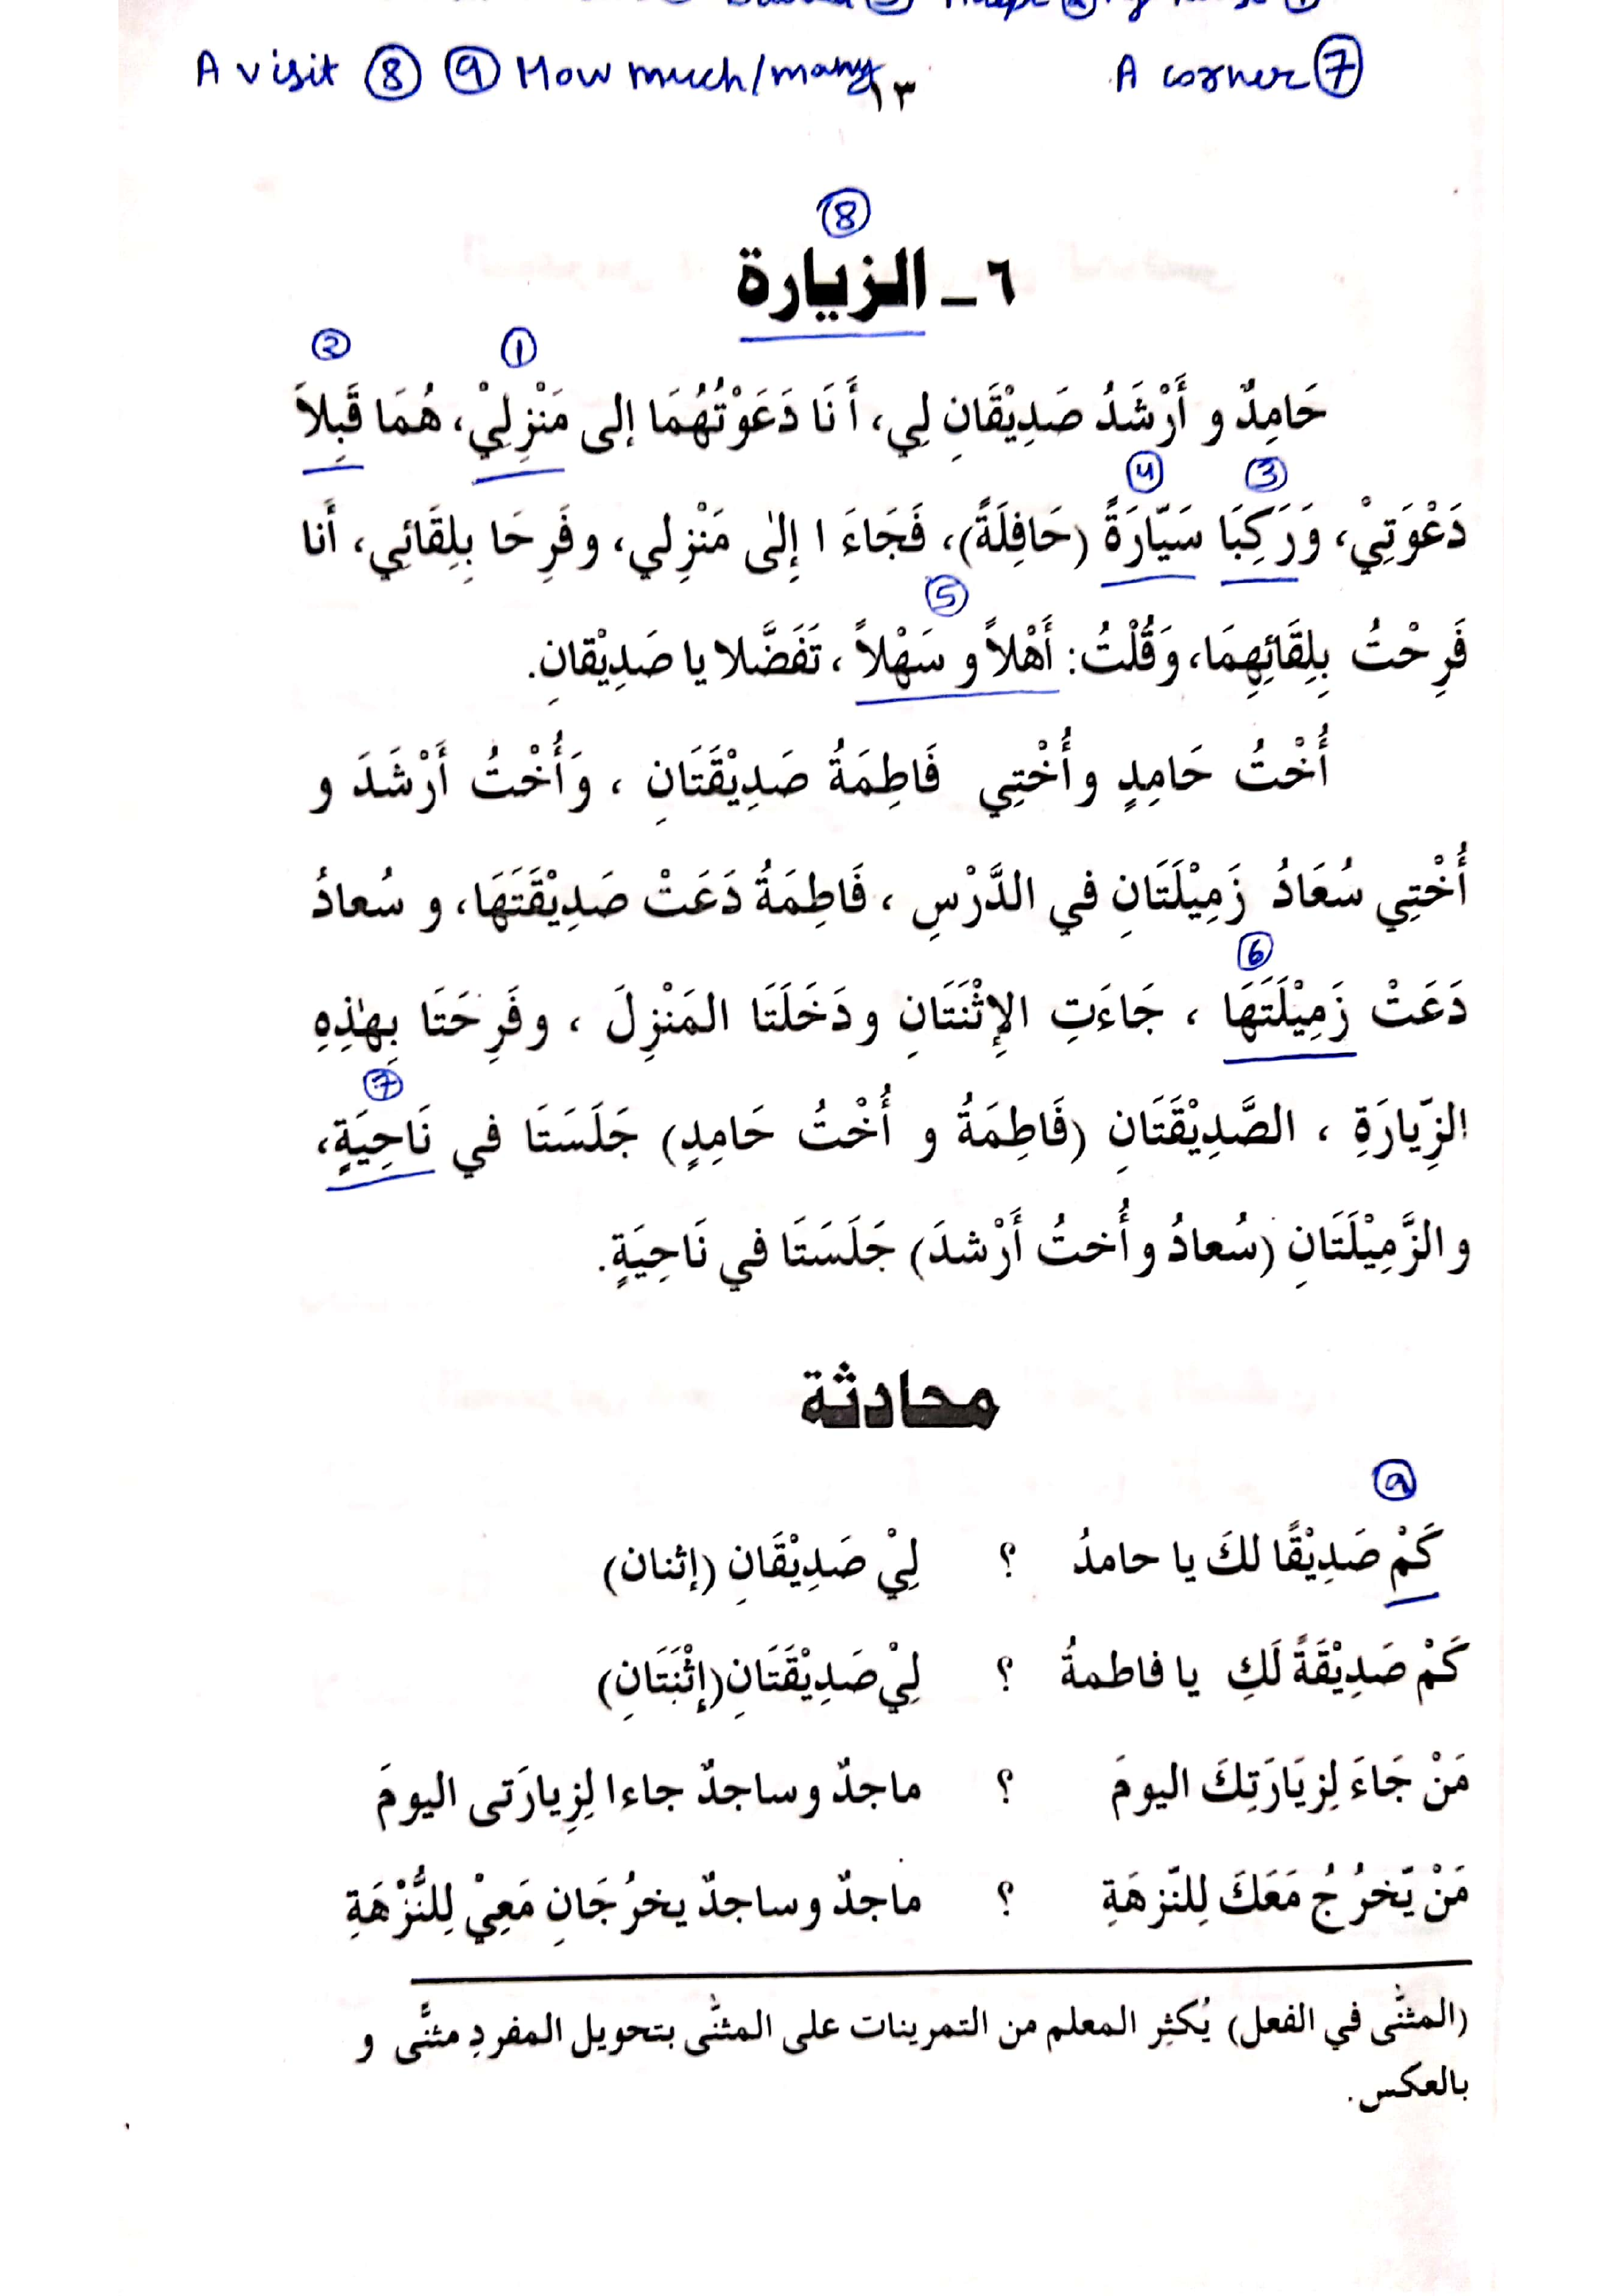 A visit ⑧ ⑨ How much/many A corner ⑦
١٣
⑧
٦ ـ الزيارة
② ①
حَامِدٌ و أَرْشَدُ صَدِيْقَانِ لِي، أَنَا دَعَوْتُهُمَا إلى مَنْزِلِيْ، هُمَا قَبِلاَ
④ ③
دَعْوَتِيْ، وَرَكِبَا سَيّارَةً (حَافِلَةً)، فَجَاءَ ا إِلىٰ مَنْزِلي، وفَرِحَا بِلِقَائِي، أَنا
⑤
فَرِحْتُ بِلِقَائِهِمَا، وَقُلْتُ: أَهْلاً و سَهْلاً، تَفَضَّلا يا صَدِيْقانِ.
أُخْتُ حَامِدٍ وأُخْتِي فَاطِمَةُ صَدِيْقَتَانِ ، وَأُخْتُ أَرْشَدَ و
أُخْتِي سُعَادُ زَمِيْلَتَانِ في الدَّرْسِ ، فَاطِمَةُ دَعَتْ صَدِيْقَتَهَا، و سُعادُ
⑥
دَعَتْ زَمِيْلَتَهَا ، جَاءَتِ الإِثْنَتَانِ ودَخَلَتَا المَنْزِلَ ، وفَرِحَتَا بِهٰذِهِ
⑦
الزِّيارَةِ ، الصَّدِيْقَتَانِ (فَاطِمَةُ و أُخْتُ حَامِدٍ) جَلَسَتَا في نَاحِيَةٍ،
والزَّمِيْلَتَانِ (سُعادُ وأُختُ أَرْشدَ) جَلَسَتَا في نَاحِيَةٍ.
محادثة
⑨
كَمْ صَدِيْقًا لكَ يا حامدُ ؟ لِيْ صَدِيْقَانِ (إثنان)
كَمْ صَدِيْقَةً لَكِ يا فاطمةُ ؟ لِيْ صَدِيْقَتَانِ (إِثْنَتَانِ)
مَنْ جَاءَ لِزيَارَتِكَ اليومَ ؟ ماجدٌ وساجدٌ جاءا لِزِيارَتى اليومَ
مَنْ يّخرُجُ مَعَكَ لِلنّزهَةِ ؟ ماجدٌ وساجدٌ يخرُجَانِ مَعِيْ لِلنُّزْهَةِ
(المثنّى في الفعل) يُكثِر المعلم من التمرينات على المثنّى بتحويل المفردِ مثنًّى و
بالعكس.